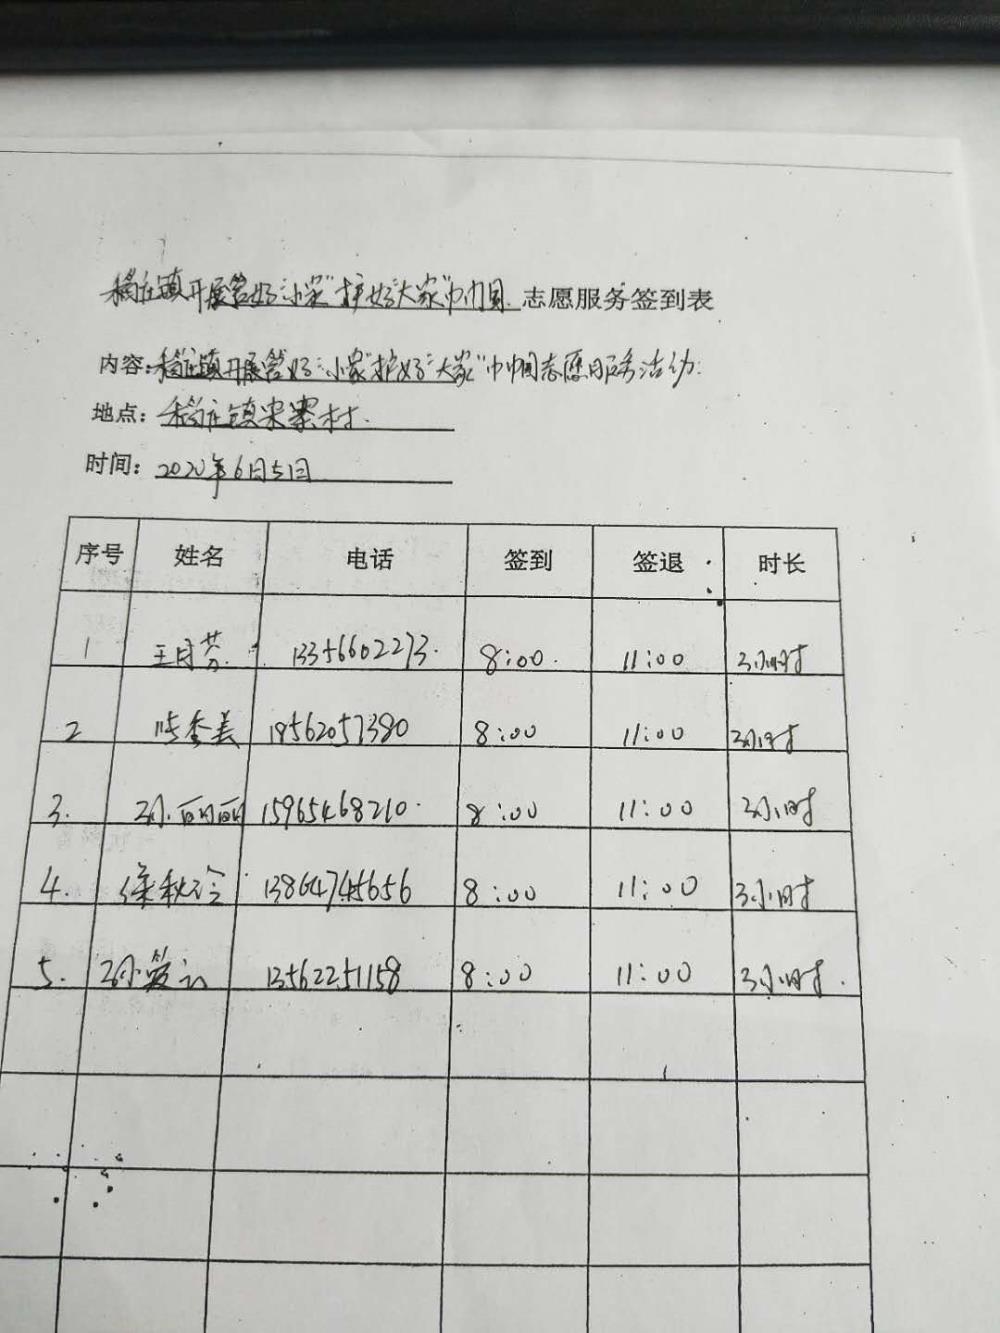 稻庄镇开展管好“小家”护好“大家”巾帼 志愿服务签到表
内容:稻庄镇开展管好“小家”护好“大家”巾帼志愿服务活动.
地点:稻庄镇宋寨村.
时间:2020年6月5日
序号 姓名 电话 签到 签退 时长
1 王月芬. 13356602273. 8:00. 11:00 3小时
2 秀美 19562057380 8:00 11:00 3小时
3. 孙丽丽 15965468210. 8:00 11:00 3小时
4. 徐秋玲 13864745656 8:00 11:00 3小时
5. 孙爱云 13562251158 8:00 11:00 3小时.